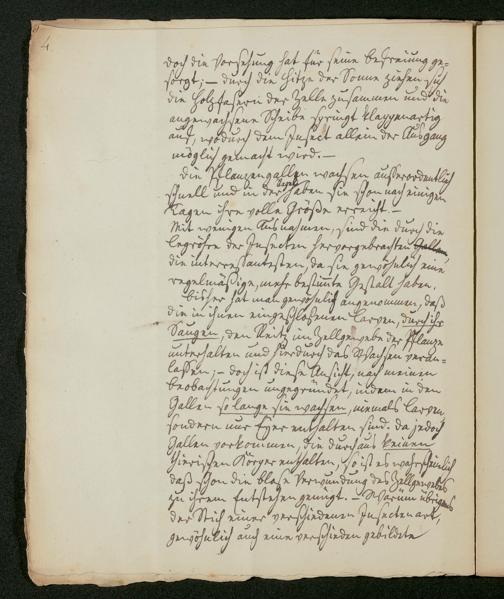 4.
doch die Vorsehung hat für seine Befreiung ge-
sorgt; – durch die Hitze der Sonne ziehen sich
die Holzfasern der Zelle zusammen und die
angewachsene Scheibe springt klappenartig
auf, wodurch dem Insect allein der Ausgang
möglich gemacht wird. –
Die Pflanzengallen wachsen außerordentlich
schnell und in der Regel haben sie schon nach einigen
Tagen ihre volle Größe erreicht. –
Mit wenigen Ausnahmen, sind die durch die
Legröhre der Insecten hervorgebrachten Gallen
die interessantesten, da sie gewöhnlich eine
regelmäßige, mehr bestimte Gestalt haben.
Bisher hat man gewöhnlich angenommen, daß
die in ihnen eingeschloßenen Larven, durch ihr
Saugen, den Reitz im Zellgewebe der Pflanze
unterhalten und hierdurch das Wachsen veran-
lassen; – doch ist diese Ansicht, nach meinen
Beobachtungen ungegründet, indem in den
Gallen so lange sie wachsen, niemals Larven
sondern nur Eyer enthalten sind. Da jedoch
Gallen vorkommen, die durchaus keinen
thierischen Körper enthalten, so ist es wahrscheinlich
daß schon die bloße Verwundung des Zellgewebes
zu ihrem Entstehen genügt. – Warum übrigens
der Stich einer verschiedenen Insectenart,
gewöhnlich auch eine verschieden gebildete